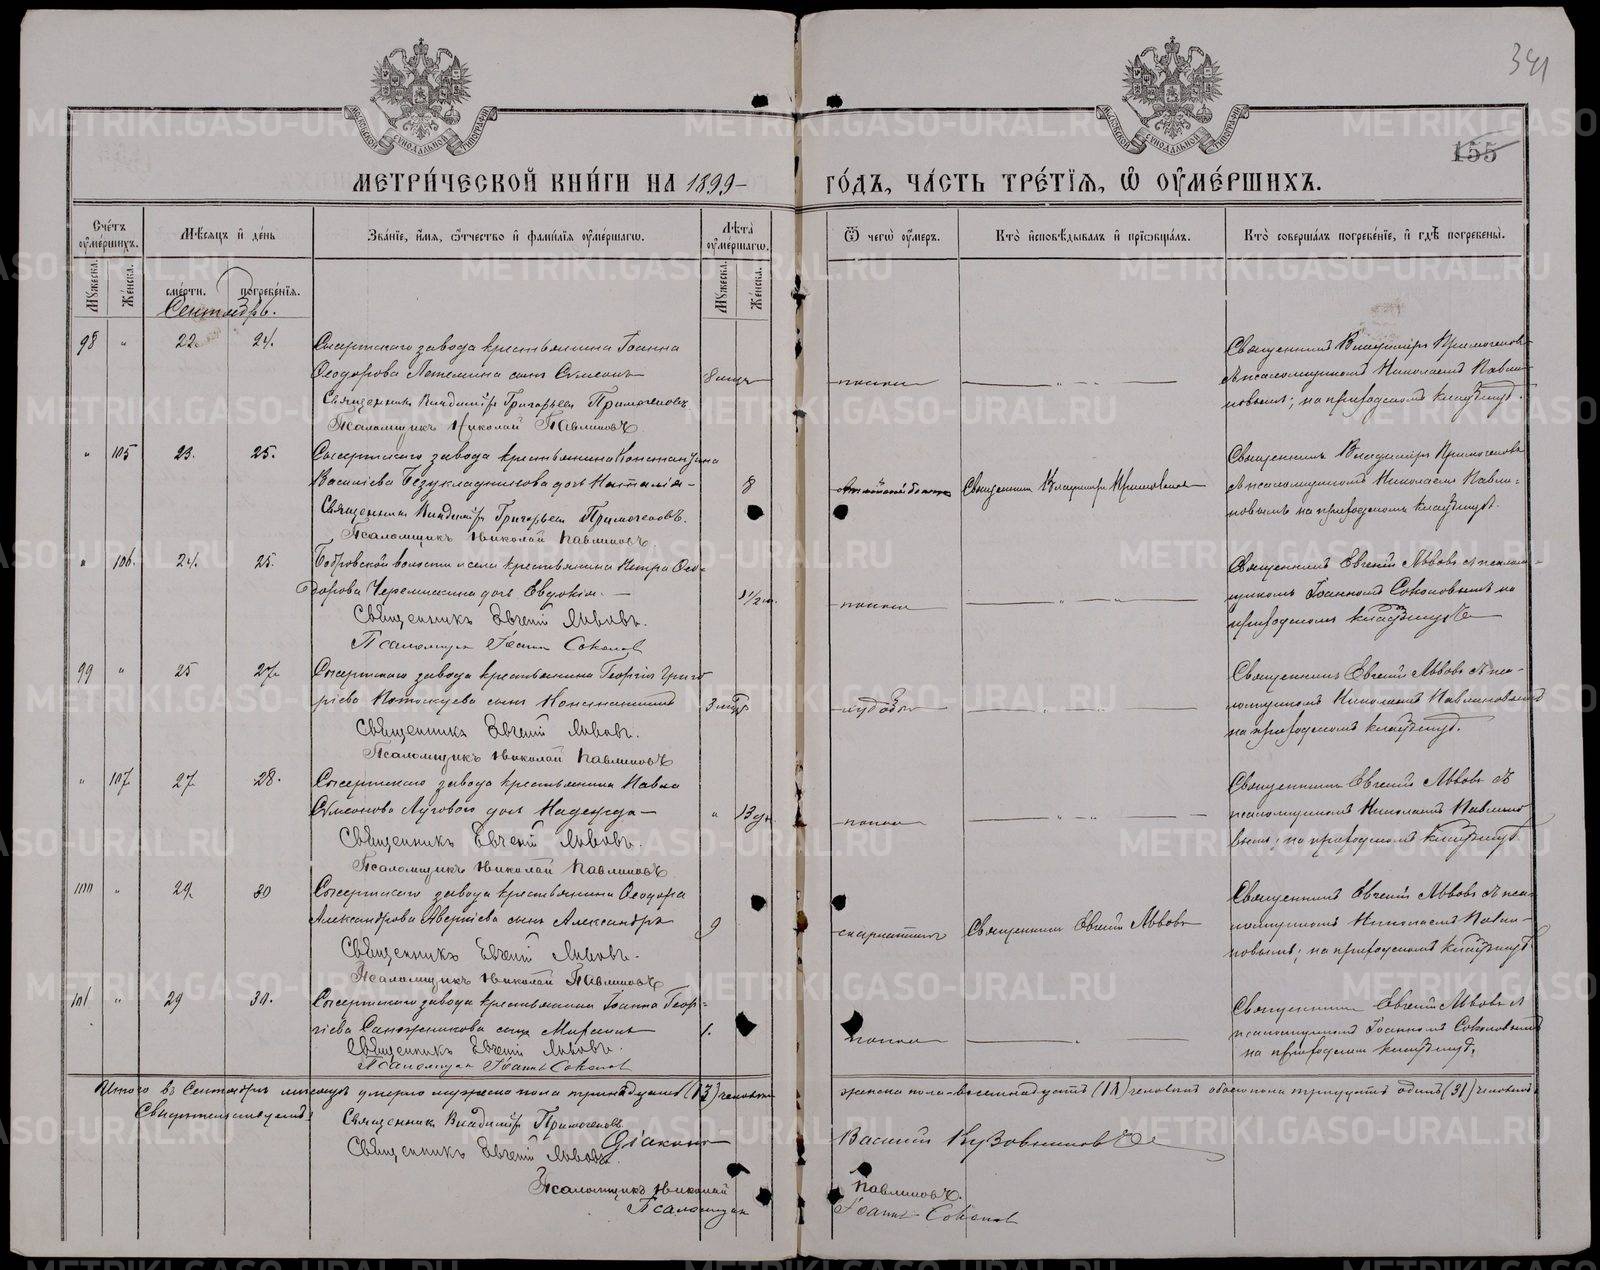 341
155
МЕТРИ́ЧЕСКОЙ КНИ́ГИ НА 1899-
ГО́ДЪ, ЧА́СТЬ ТРЕ́ТЇѦ, Ѿ ОУ҆МЕ́РШИХЪ.
Сче́тъ оу҆ме́ршихъ.
Мꙋжеска.
Же́нска.
Мѣ́сяцъ и҆ де́нь
сме́рти.
погребе́нїѧ.
Зва́нїе, и҆́мѧ, ѻ҆́тчество и҆ фами́лїѧ оу҆ме́ршагѡ.
Лѣ́та оу҆ме́ршагѡ.
Мꙋжеска.
Же́нска.
Ѿ чегѡ̀ оу҆́меръ.
Кто̀ и҆сповѣ́дывалъ и҆ прїѡбща́лъ.
Кто̀ соверша́лъ погребе́нїе, и҆ гдѣ̀ погребены̀.
Сентябрь.
98 " 22. 24. Сысертскаго завода крестьянина Іоанна
Ѳеодорова сынъ Сѵмеонъ
Священникъ Владиміръ Григорьевъ Примогеновъ
Псаломщикъ Николай Павлиновъ
Священникъ Владиміръ Примогеновъ
съ псаломщикомъ Николаемъ Павли-
новымъ; на приходскомъ кладбищѣ.
" 105 23. 25. Сысертскаго завода крестьянина Константина
Василіева Безукладникова дочь Наталія - 8
Священникъ Владиміръ Примогеновъ
Священникъ Владиміръ Григорьевъ Примогеновъ.
Псаломщикъ Николай Павлиновъ
Священникъ Владиміръ Примогеновъ
съ псаломщикомъ Николаемъ Павли-
новымъ на приходскомъ кладбищѣ.
" 106. 24. 25. Бобровской волости и села крестьянина Петра Ѳео-
дорова Черемискина дочь Евдокія. —
Священникъ Евгеній Львовъ.
Псаломщикъ Іоаннъ Соколовъ
Священникъ Евгеній Львовъ съ псалом-
щикомъ Іоанномъ Соколовымъ на
приходскомъ кладбищѣ
99 " 25 27. Сысертскаго завода крестьянина Георгія Григо
ріева сынъ Константинъ
Священникъ Евгеній Львовъ.
Псаломщикъ Николай Павлиновъ
Священникъ Евгеній Львовъ съ пса-
ломщикомъ Николаемъ Павлиновымъ
на приходскомъ кладбищѣ.
" 107 27. 28. Сысертскаго завода крестьянина Павла
Сѵмеонова Лугового дочь Надежда — " 13 дн.
Священникъ Евгеній Львовъ.
Псаломщикъ Николай Павлиновъ
Священникъ Евгеній Львовъ съ
псаломщикомъ Николаемъ Павлино
вымъ; на приходскомъ кладбищѣ.
100 " 29. 30 Сысертскаго завода крестьянина Ѳеодора
Александрова Аверкіева сынъ Александръ 9
скарлатины Священникъ Евгеній Львовъ
Священникъ Евгеній Львовъ.
Псаломщикъ Николай Павлиновъ
Священникъ Евгеній Львовъ съ пса-
ломщикомъ Николаемъ Павли-
новымъ; на приходскомъ кладбищѣ
101 " 29 30. Сысертскаго завода крестьянина Іоанна Геор-
гіева Сапожникова сынъ 1.
Священникъ Евгеній Львовъ.
Псаломщикъ Іоаннъ Соколовъ
Священникъ Евгеній Львовъ съ
псаломщикомъ Іоанномъ Соколовымъ
на приходскомъ кладбищѣ.
Итого въ Сентябрѣ мѣсяцѣ умерло мужеска пола тринадцать (13) человѣкъ
женска пола-восемнадцать (18) человѣкъ обоего пола тридцать одинъ (31) человѣкъ
Свидѣтельствуемъ:
Священникъ Владиміръ Примогеновъ.
Священникъ Евгеній Львовъ.
Діаконъ Василій Кузовниковъ
Псаломщикъ Николай Павлиновъ.
Псаломщикъ Іоаннъ Соколовъ
METRIKI.GASO-URAL.RU